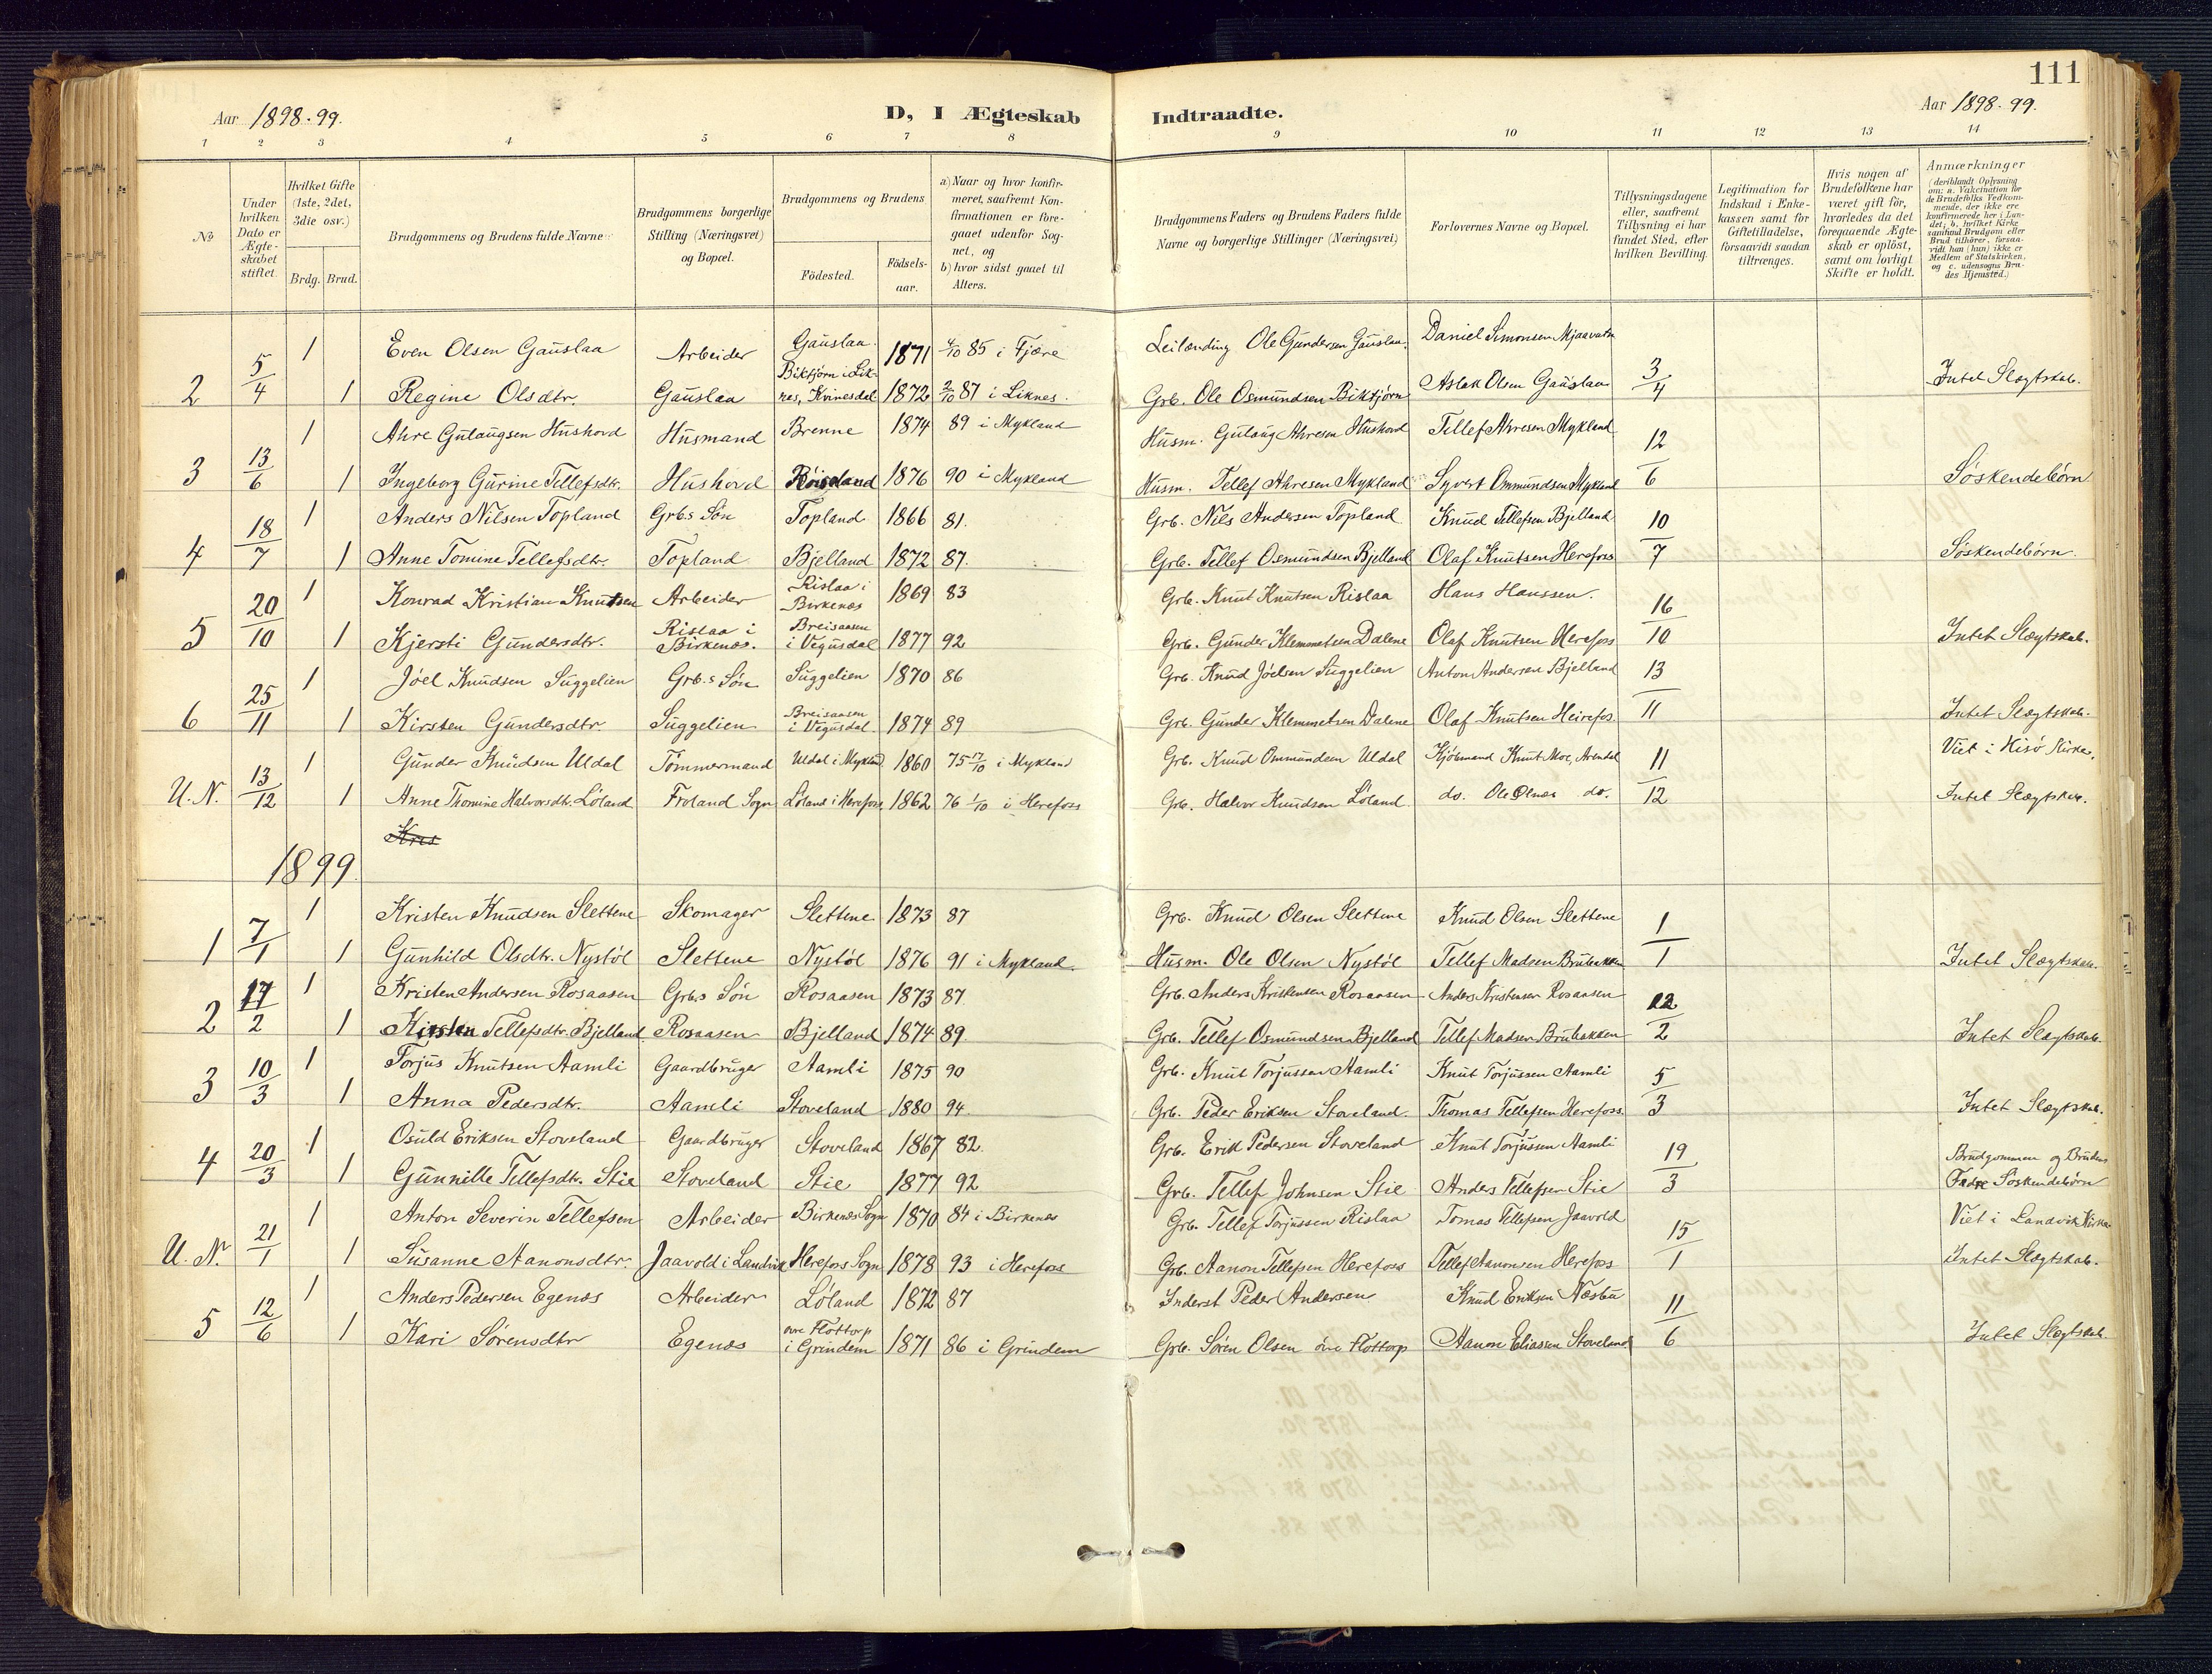 111
Aar 1898-99.
D, I Ægteskab Indtraadte.
Aar 1898-99.
1 2 3 4 5 6 7 8 9 10 11 12 13 14
No
Under hvilken Dato er Ægteskabet stiftet.
Hvilket Gifte (1ste, 2det, 3die osv.)
Brdg. Brud.
Brudgommens og Brudens fulde Navne
Brudgommens borgerlige Stilling (Næringsvei) og Bopæl.
Brudgommens og Brudens
Födested.
Födselsaar.
a) Naar og hvor konfirmeret, saafremt Konfirmationen er foregaaet udenfor Sognet, og
b) hvor sidst gaaet til Alters.
Brudgommens Faders og Brudens Faders fulde Navne og borgerlige Stillinger (Næringsvei)
Forlovernes Navne og Bopæl.
Tillysningsdagene eller, saafremt Tillysning ei har fundet Sted, efter hvilken Bevilling.
Legitimation for Indskud i Enkekassen samt for Giftetilladelse, forsaavidt saadan tiltrænges.
Hvis nogen af Brudefolkene har været gift för, hvorledes da det foregaaende Ægteskab er oplöst, samt om lovligt Skifte er holdt.
Anmærkninger (deriblandt Oplysning om: a. Vakcination for de Brudefolks Vedkommende, der ikke ere konfirmerede her i Landet; b. hvilket Kirkesamfund Brudgom eller Brud tilhörer, forsaavidt han (hun) ikke er Medlem af Statskirken, og c. udensogns Brudes Hjemsted.)
1 Even Olsen Gauslaa Arbeider Gauslaa 1871 4/10 85 i Fjære Leilænding Ole Gundersen Gauslaa. Daniel Simonsen Mjaavatn
2 5/4 1 Regine Olsdtr. Gauslaa Biktjörn i Liknes, Kvinesdal 1872 2/10 87 i Liknes. Grb. Ole Osmundsen Biktjörn Aslak Olsen Gauslaa 3/4 Intet Slægtskab.
1 Ahre Gulaugsen Hushovd Husmand Brenne 1874 89 i Mykland Husm. Gulaug Ahresen Hushovd Tellef Ahresen Mykland
3 13/6 1 Ingeborg Gurine Tellefsdtr. Hushovd Röisland 1876 90 i Mykland Husm. Tellef Ahresen Mykland Syvert Ommundsen Mykland 12/6 Söskendebörn
1 Anders Nilsen Topland Grb.s Sön Topland 1866 81. Grb. Nils Andersen Topland Knud Tellefsen Bjelland
4 18/7 1 Anne Tomine Tellefsdtr. Topland Bjelland 1872 87. Grb. Tellef Osmundsen Bjelland Olaf Knutsen Herefoss 10/7 Söskendebörn.
1 Konrad Kristian Knutsen Arbeider Rislaa i Birkenæs 1869 83 Grb. Knut Knutsen Rislaa Hans Hanssen.
5 20/10 1 Kjersti Gundersdtr. Rislaa i Birkenæs. Breisaasen i Vegusdal 1877 92 Grb. Gunder Klemmetsen Dalene Olaf Knutsen Herefoss 16/10 Intet Slægtskab.
1 Jöel Knudsen Suggelien Grb.s Sön Suggelien 1870 86 Grb. Knud Jöelsen Suggelien Anton Andersen Bjelland
6 25/11 1 Kirsten Gundersdtr. Suggelien Breisaasen i Vegusdal. 1874 89 Grb. Gunder Klemmetsen Dalene Olaf Knutsen Heirefos. 13/11 Intet Slægtskab.
1 Gunder Knudsen Uldal Tömmermand Uldal i Mykland 1860 75 17/10 i Mykland Grb. Knud Ommundsen Uldal Kjöbmand Knut Moe, Arendal Viet i Hisö Kirke.
U. N. 13/12 1 Anne Thomine Halvorsdtr. Löland Froland Sogn Löland i Herefoss 1862 76 1/10 i Herefoss Grb. Halvor Knudsen Löland do. Ole Olnes do. 11/12 Intet Slægtskab.
Kris
1899
1 Kristen Knudsen Slettene Skomager Slettene 1873 87 Grb. Knud Olsen Slettene Knud Olsen Slettene
1 7/1 1 Gunhild Olsdtr. Nystöl Slettene Nystöl 1876 91 i Mykland. Husm. Ole Olsen Nystöl Tellef Madsen Brubakken 1/1 Intet Slægtskab.
1 Kristen Andersen Rosaasen Grb.s Sön Rosaasen 1873 87. Grb. Anders Kristensen Rosaasen Anders Kristensen Rosaasen
2 17/2 1 Kirsten Tellefsdtr. Bjelland Rosaasen Bjelland 1874 89. Grb. Tellef Osmundsen Bjelland Tellef Madsen Brubakken 12/2 Intet Slægtskab.
1 Torjus Knutsen Aamli Gaardbruger Aamli 1875 90 Grb. Knut Torjussen Aamli Knut Torjussen Aamli
3 10/3 1 Anna Pedersdtr. Aamli Stoveland 1880 94. Grb. Peder Eriksen Stoveland. Thomas Tellefsen Herefoss. 5/3 Intet Slægtskab.
1 Osuld Eriksen Stoveland Gaardbruger Stoveland 1867 82. Grb. Erik Pedersen Stoveland Knut Torjussen Aamli Brudgommen og Brudens
4 20/3 1 Gunnille Tellefsdtr. Stie Stoveland Stie 1877 92 Grb. Tellef Johnsen Stie Anders Tellefsen Stie 19/3 Fadre Söskendebörn
1 Anton Severin Tellefsen Arbeider Birkenæs Sogn 1870 84 i Birkenæs Grb. Tellef Torjussen Rislaa Tomas Tellefsen Jaavold Viet i Landvik Kirke
U. N. 21/1 1 Susanne Aanonsdtr. Jaavold i Landvik Herefoss Sogn 1878 93 i Herefoss Grb. Aanon Tellefsen Herefoss Tellef Aanonsen Herefoss 15/1 Intet Slægtskab.
1 Anders Pedersen Egenæs Arbeider Löland 1872 87 Inderst Peder Andersen Knud Eriksen Næsbu
5 12/6 1 Kari Sörensdtr Egenæs övre Flottorp i Grindem 1871 86 i Grindem Grb. Sören Olsen övre Flottorp Aanon Eliassen Stoveland 11/6 Intet Slægtskab.